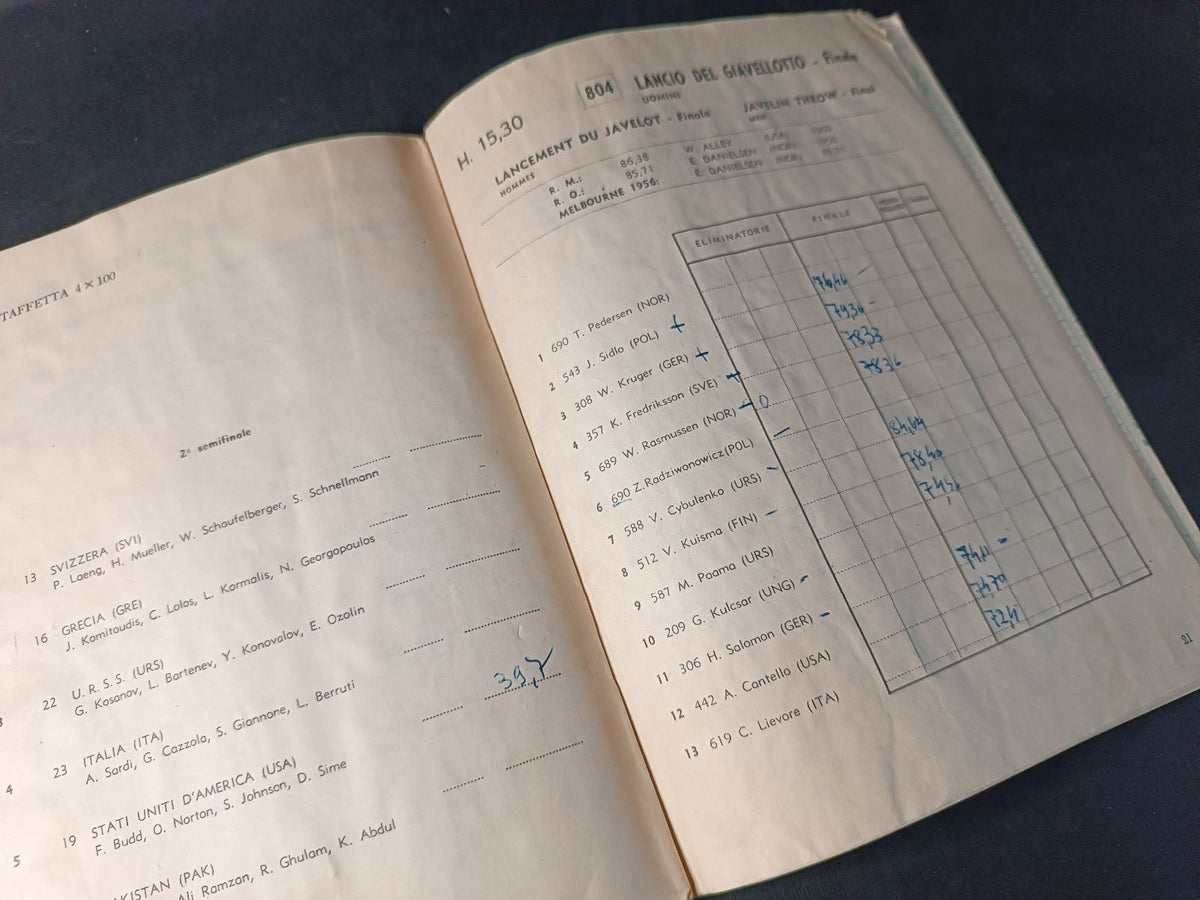 TAFFETTA 4 × 100
2ª semifinale
13 SVIZZERA (SVI)
P. Laeng, H. Mueller, W. Schaufelberger, S. Schnellmann
16 GRECIA (GRE)
J. Komitoudis, C. Lolos, L. Kormalis, N. Georgopoulos
3 22 U.R.S.S. (URS)
G. Kosanov, L. Bartenev, Y. Konovalov, E. Ozolin
4 23 ITALIA (ITA)
A. Sardi, G. Cazzola, S. Giannone, L. Berruti
39,7
5 19 STATI UNITI D'AMERICA (USA)
F. Budd, O. Norton, S. Johnson, D. Sime
KISTAN (PAK)
Ali Ramzan, R. Ghulam, K. Abdul
H. 15,30
804 LANCIO DEL GIAVELLOTTO - Finale
UOMINI
LANCEMENT DU JAVELOT - Finale
HOMMES
JAVELIN THROW - Final
MEN
R. M.: 86,38 W. ALLEY (USA) 1960
R. O.: 85,71 E. DANIELSEN (NOR) 1956
MELBOURNE 1956: E. DANIELSEN (NOR) 85,71
ELIMINATORIE FINALE
1 690 T. Pedersen (NOR)
2 543 J. Sidlo (POL) + 76,46
3 308 W. Kruger (GER) + 79,36
4 357 K. Fredriksson (SVE) + 78,33
5 689 W. Rasmussen (NOR) - 0 78,36
6 690 Z. Radziwonowicz (POL) -
7 588 V. Cybulenko (URS) - 84,64
8 512 V. Kuisma (FIN) - 78,40
9 587 M. Paama (URS)
10 209 G. Kulcsar (UNG) -
11 306 H. Salomon (GER) -
12 442 A. Cantello (USA)
13 619 C. Lievore (ITA)
21